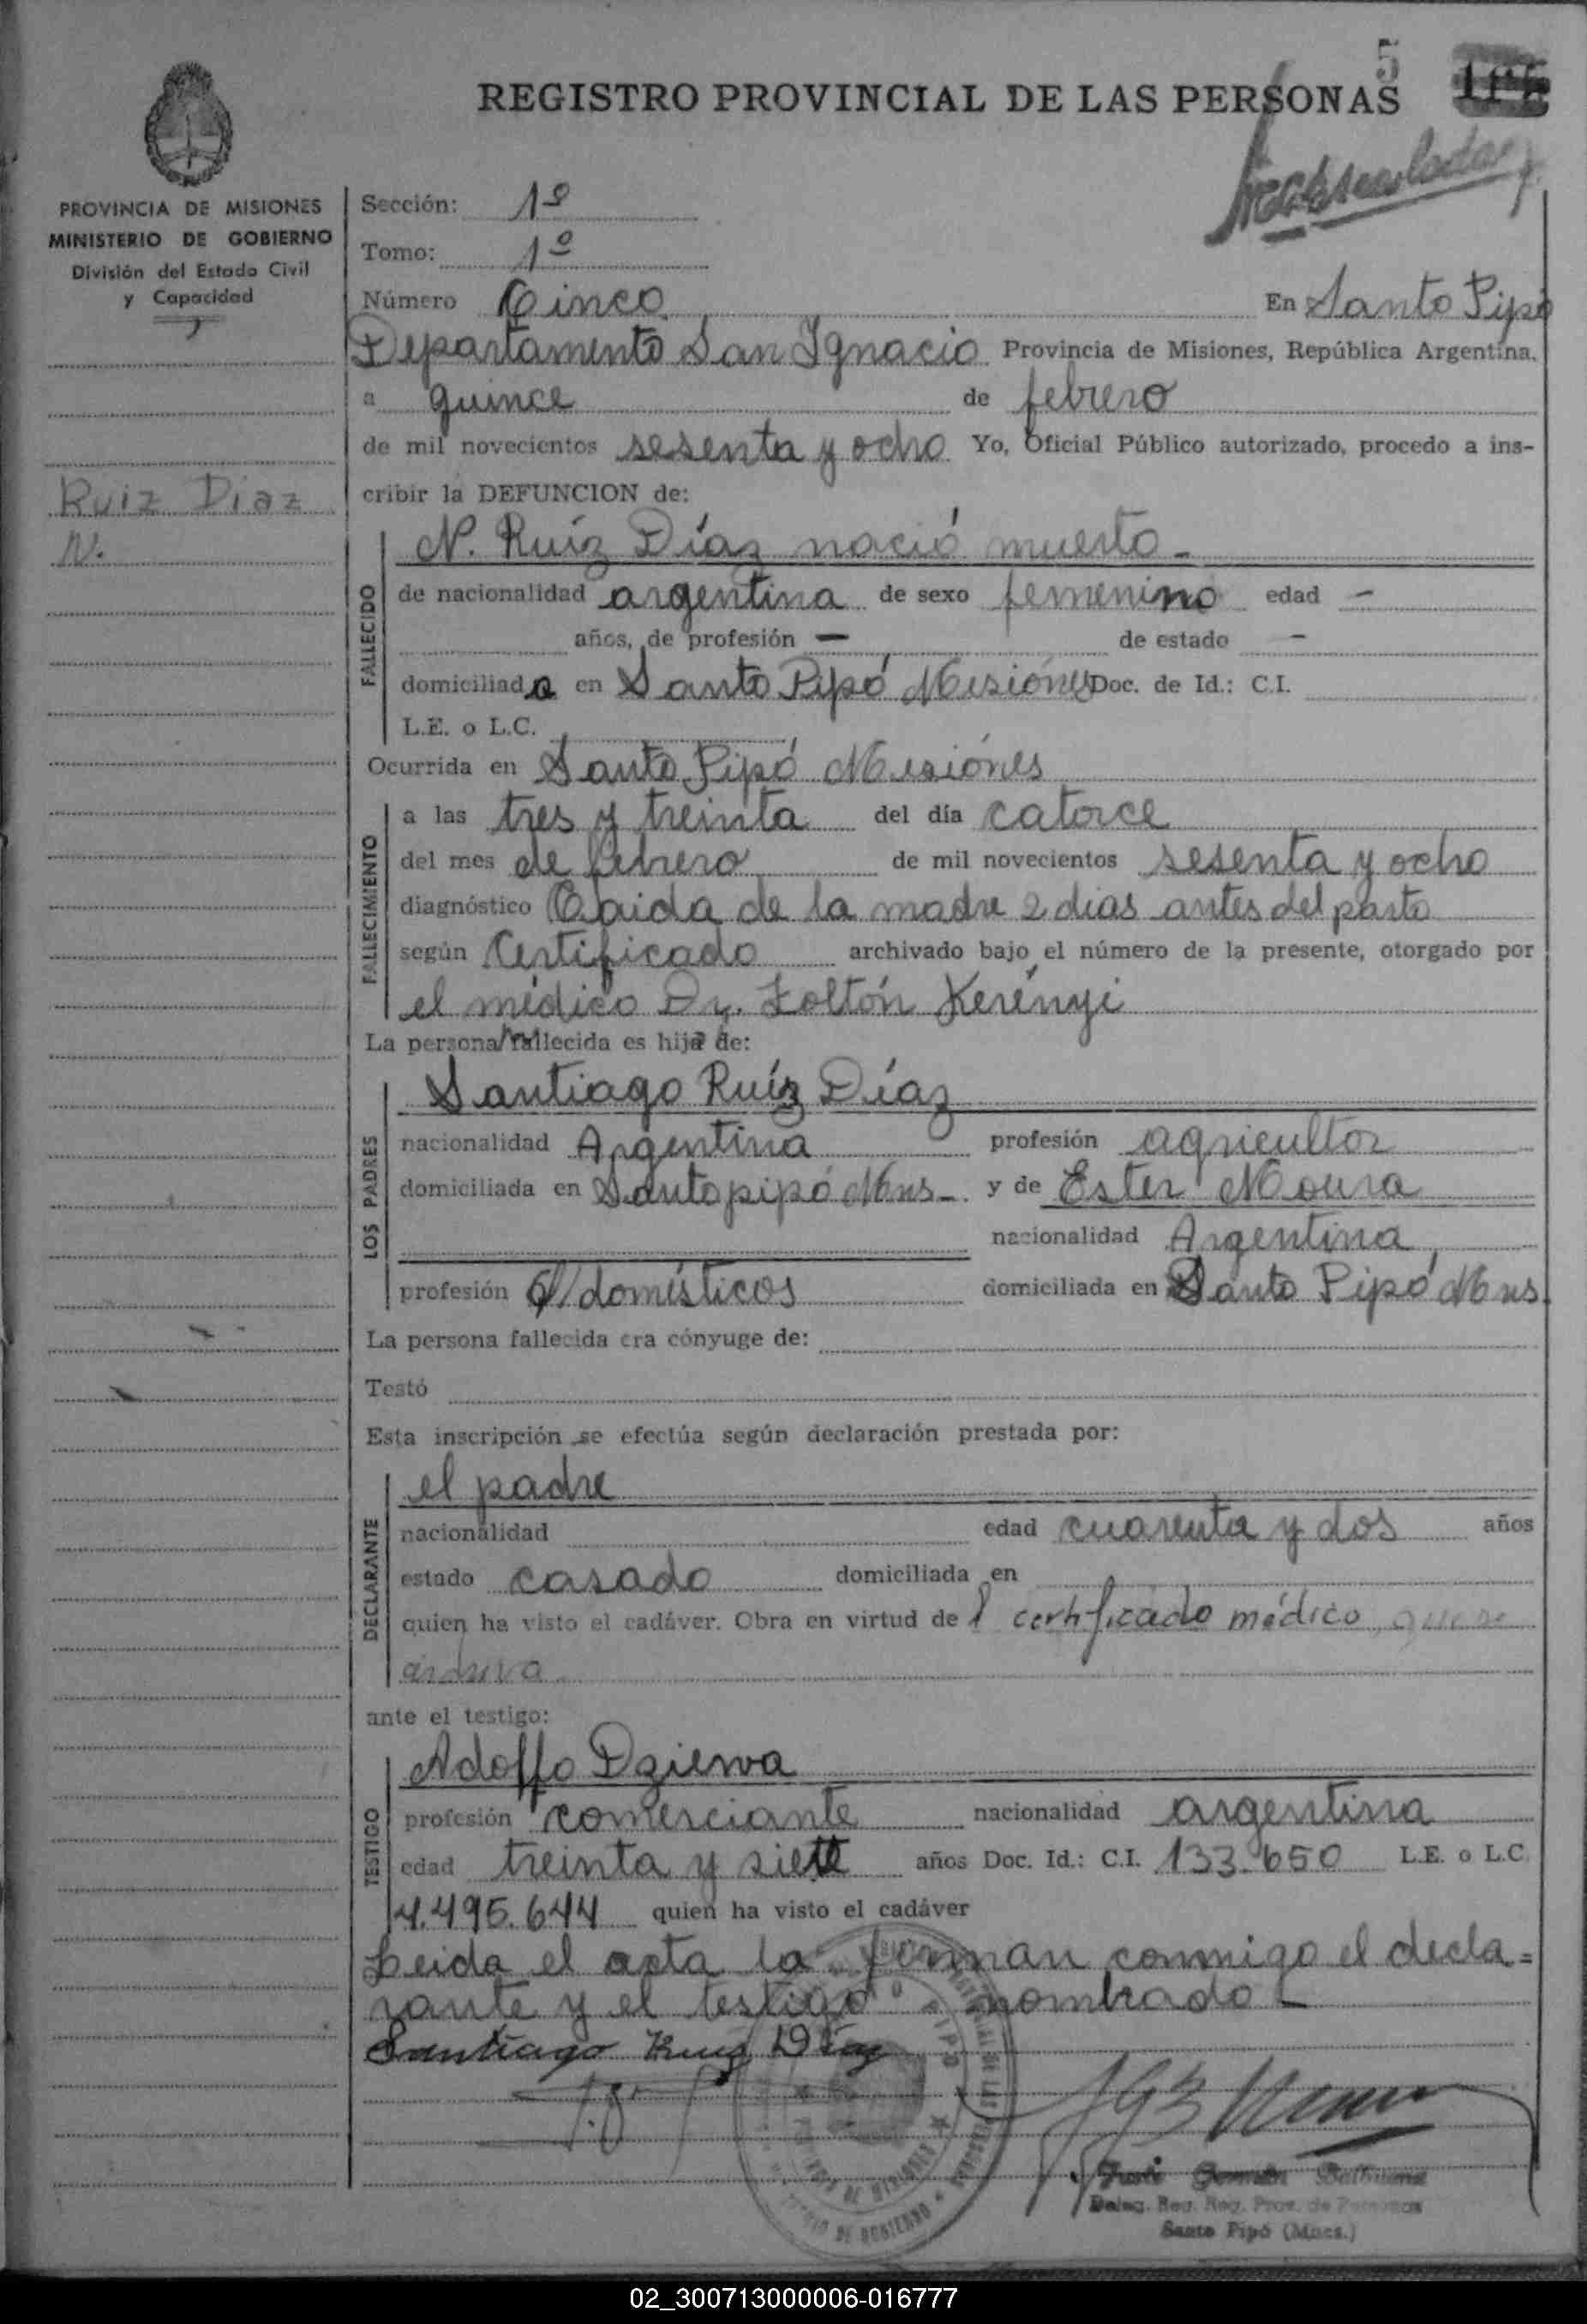 5
REGISTRO PROVINCIAL DE LAS PERSONAS
PROVINCIA DE MISIONES
MINISTERIO DE GOBIERNO
División del Estado Civil
y Capacidad
Ruiz Diaz
N.
Sección: 1º
Tomo: 1º
Número Cinco En Santo Pipó
Departamento San Ignacio Provincia de Misiones, República Argentina.
a quince de febrero
de mil novecientos sesenta y ocho Yo, Oficial Público autorizado, procedo a ins-
cribir la DEFUNCION de:
FALLECIDO
N. Ruíz Díaz nació muerto-
de nacionalidad argentina de sexo femenino edad -
años, de profesión - de estado -
domiciliada en Santo Pipó Misiónes Doc. de Id.: C.I.
L.E. o L.C.
Ocurrida en Santo Pipó Misiónes
FALLECIMIENTO
a las tres y treinta del día catorce
del mes de febrero de mil novecientos sesenta y ocho
diagnóstico Caida de la madre 2 dias antes del parto
según Certificado archivado bajo el número de la presente, otorgado por
el médico Dr. Zoltón Kerényi
La persona fallecida es hija de:
LOS PADRES
Santiago Ruíz Díaz
nacionalidad Argentina profesión agricultor
domiciliada en Santo pipó Mns-. y de Ester Moura
nacionalidad Argentina
profesión q/domésticos domiciliada en Santo Pipó Mns.
La persona fallecida era cónyuge de:
Testó
Esta inscripción se efectúa según declaración prestada por:
DECLARANTE
el padre
nacionalidad edad cuarenta y dos años
estado casado domiciliada en
quien ha visto el cadáver. Obra en virtud del certificado médico que se
archiva
ante el testigo:
TESTIGO
Adolfo Dziewa
profesión comerciante nacionalidad argentina
edad treinta y siete años Doc. Id.: C.I. 133.650 L.E. o L.C.
4.495.644 quien ha visto el cadáver
Leida el acta la firman conmigo el decla=
rante y el testigo nombrado-
Santiago Ruiz Díaz
Deleg. Reg. Prov. de Personas
Santo Pipó (Mnes.)
02_300713000006-016777